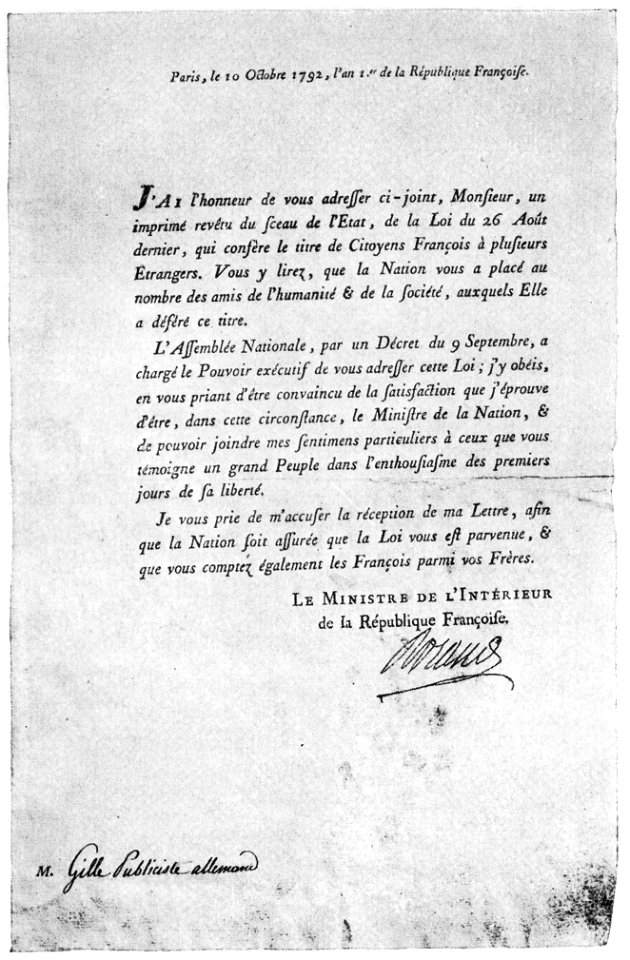 Paris, le 10 Octobre 1792, l'an 1.er de la République Françoiſe.
J'AI l'honneur de vous adreſſer ci-joint, Monſieur, un
imprimé revêtu du ſceau de l'Etat, de la Loi du 26 Août
dernier, qui confère le titre de Citoyens François à pluſieurs
Etrangers. Vous y lirez, que la Nation vous a placé au
nombre des amis de l'humanité & de la ſociété, auxquels Elle
a déféré ce titre.
L'Aſſemblée Nationale, par un Décret du 9 Septembre, a
chargé le Pouvoir exécutif de vous adreſſer cette Loi; j'y obéis,
en vous priant d'être convaincu de la ſatisfaction que j'éprouve
d'être, dans cette circonſtance, le Miniſtre de la Nation, &
de pouvoir joindre mes ſentimens particuliers à ceux que vous
témoigne un grand Peuple dans l'enthouſiaſme des premiers
jours de ſa liberté.
Je vous prie de m'accuſer la réception de ma Lettre, afin
que la Nation ſoit aſſurée que la Loi vous eſt parvenue, &
que vous comptez également les François parmi vos Frères.
LE MINISTRE DE L'INTÉRIEUR
de la République Françoiſe.
Roland
M. Gille Publiciste allemand